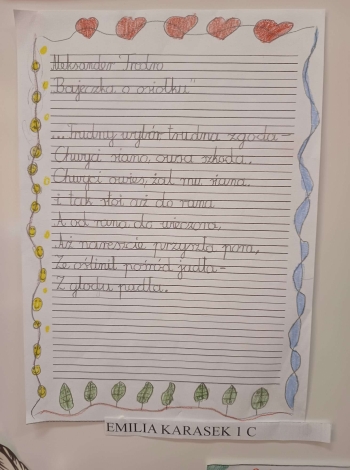 Aleksander Fredro
"Bajeczka o osiołku"
...Trudny wybór trudna zgoda –
Chwyci siano, owsa szkoda.
Chwyci owies, żal mu siana.
i tak stoi aż do rana
A od rana do wieczora,
Aż nareszcie przyszła pora,
Że oślina pośród jadła –
Z głodu padła.
EMILIA KARASEK 1 C